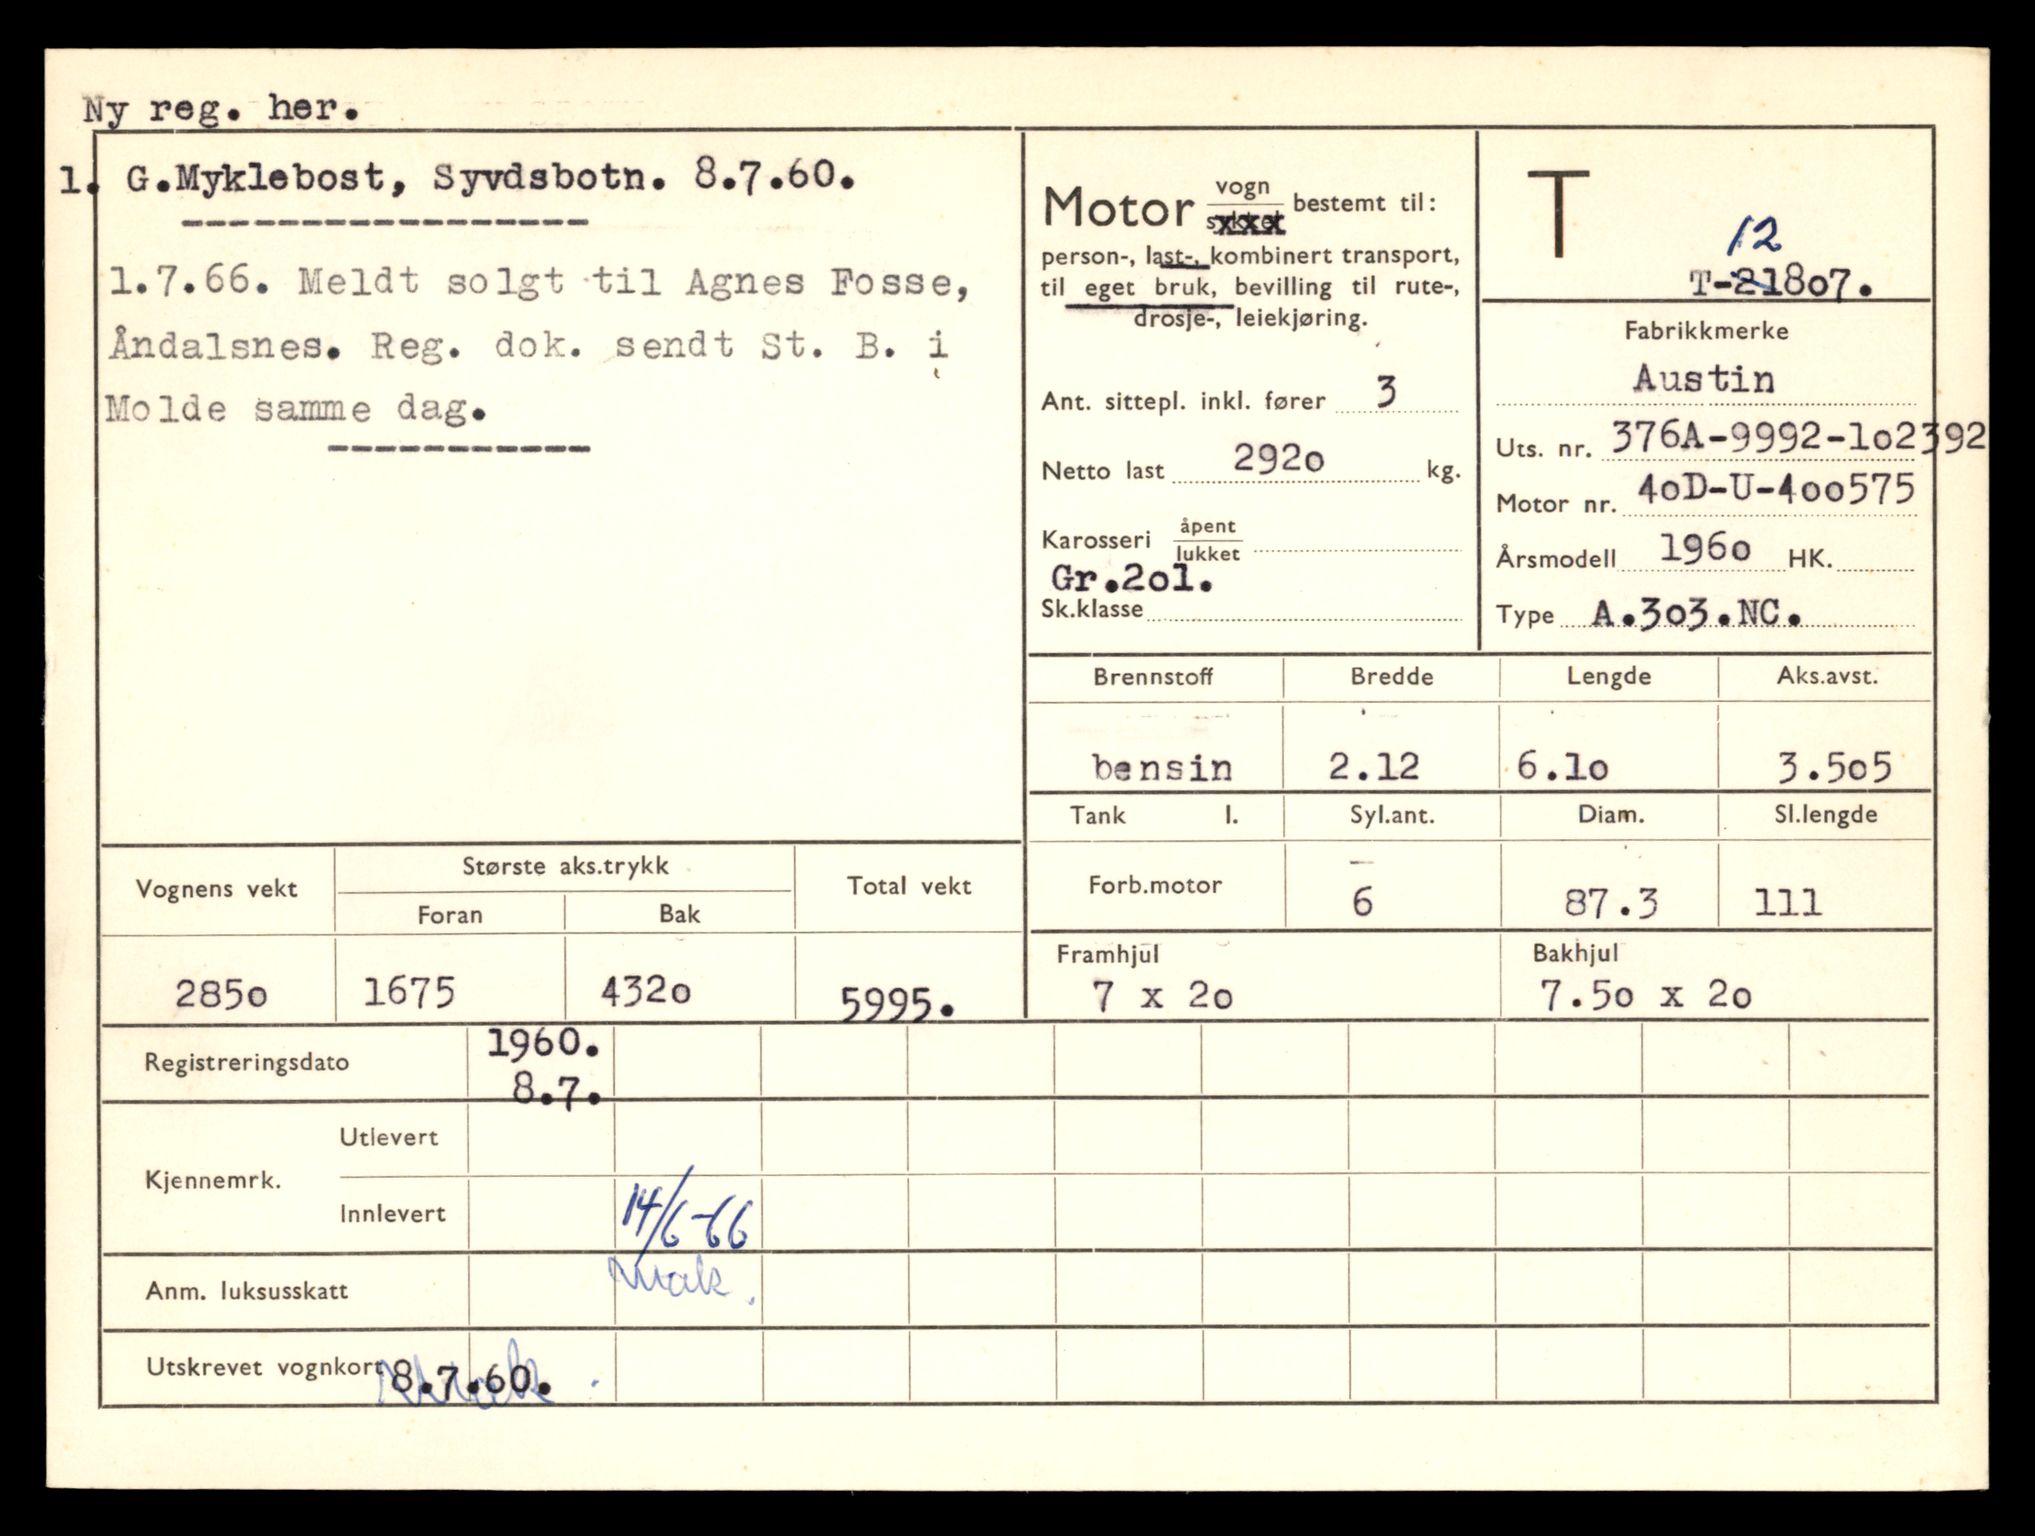 Ny reg. her.
1. G.Myklebost, Syvdsbotn. 8.7.60.
1.7.66. Meldt solgt til Agnes Fosse,
Åndalsnes. Reg. dok. sendt St. B. i
Molde samme dag.
Motor vogn bestemt til:
person-, last-, kombinert transport,
til eget bruk, bevilling til rute-,
drosje-, leiekjøring.
Ant. sittepl. inkl. fører 3
Netto last 292o kg.
Karosseri åpent
lukket
Gr.2o1.
Sk.klasse
T
12
T-218o7.
Fabrikkmerke
Austin
Uts. nr. 376A-9992-1o2392
Motor nr. 4oD-U-4oo575
Årsmodell 196o HK.
Type A.3o3.NC.
Brennstoff Bredde Lengde Aks.avst.
bensin 2.12 6.1o 3.5o5
Tank l. Syl.ant. Diam. Sl.lengde
Forb.motor 6 87.3 111
Framhjul Bakhjul
7 x 2o 7.5o x 2o
Vognens vekt Største aks.trykk Total vekt
Foran Bak
285o 1675 432o 5995.
Registreringsdato 1960.
8.7.
Kjennemrk. Utlevert
Innlevert 14/6-66
Anm. luksusskatt
Utskrevet vognkort 8.7.60.